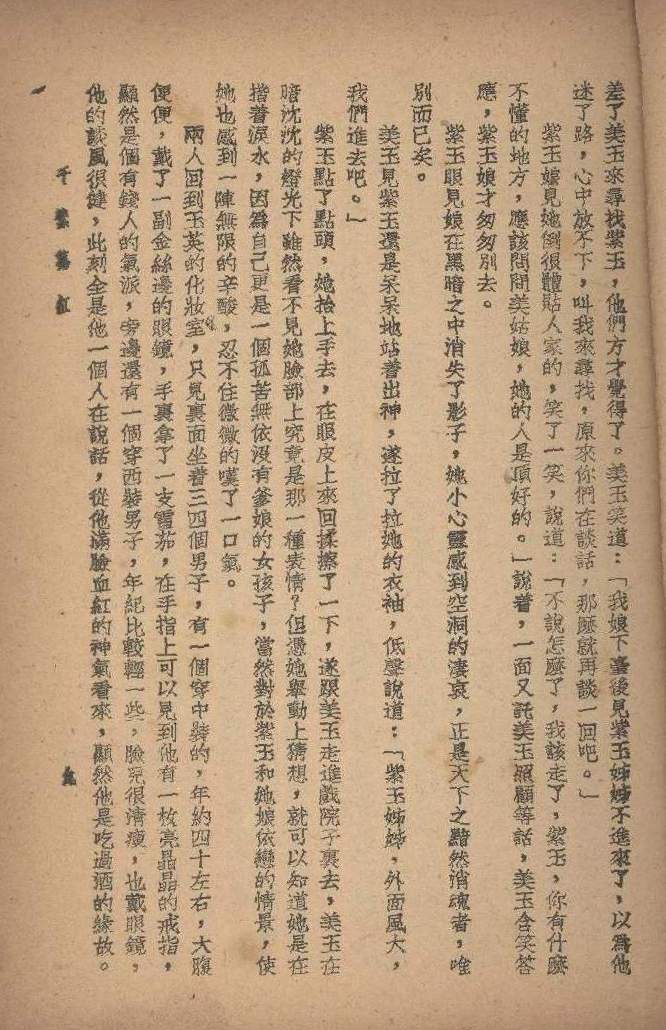 差了美玉來尋找紫玉，他們方才覺得了。美玉笑道：「我娘下臺後見紫玉姊姊不進來了，以爲他
迷了路，心中放不下，叫我來尋找，原來你們在談話，那麽就再談一回吧。」
紫玉娘見她倒很體貼人家的，笑了一笑，說道：「不說怎麽了，我該走了，紫玉，你有什麽
不懂的地方，應該問問美姑娘，她的人是頂好的。」說着，一面又託美玉照顧等話，美玉含笑答
應，紫玉娘才匆匆別去。
紫玉眼見娘在黑暗之中消失了影子，她小心靈感到空洞的淒哀，正是天下之黯然消魂者，唯
別而已矣。
美玉見紫玉還是呆呆地站着出神，遂拉了拉她的衣袖，低聲說道：「紫玉姊姊，外面風大，
我們進去吧。」
紫玉點了點頭，她抬上手去，在眼皮上來回揉擦了一下，遂跟美玉走進戲院子裏去，美玉在
暗沈沈的燈光下雖然看不見她臉部上究竟是那一種表情？但憑她舉動上猜想，就可以知道她是在
揩着淚水，因爲自己更是一個孤苦無依沒有爹娘的女孩子，當然對於紫玉和她娘依戀的情景，使
她也感到一陣無限的辛酸，忍不住微微的嘆了一口氣。
兩人回到玉英的化妝室，只見裏面坐着三四個男子，有一個穿中裝的，年約四十左右，大腹
便便，戴了一副金絲邊的眼鏡，手裏拿了一支雪茄，在手指上可以見到他有一枚亮晶晶的戒指，
顯然是個有錢人的氣派，旁邊還有一個穿西裝男子，年紀比較輕一些，臉兒很清瘦，也戴眼鏡，
他的談風很健，此刻全是他一個人在說話，從他滿臉血紅的神氣看來，顯然他是吃過酒的緣故。
千紫萬紅